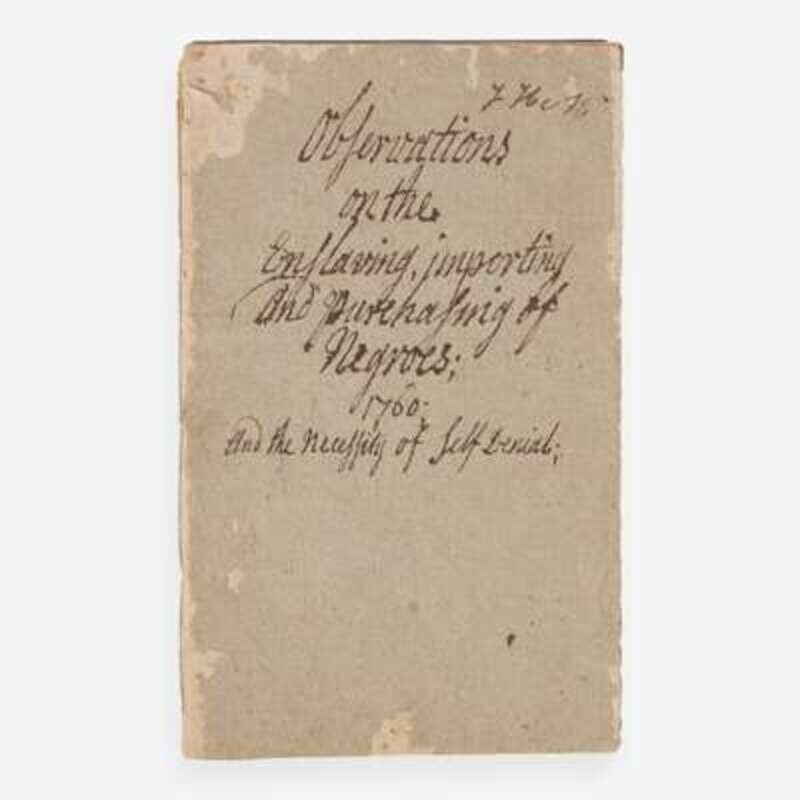 Obſervations
on the
Enſlaving, importing
And Purchaſing of
Negroes;
1760.
And the Neceſſity of Self Denial;